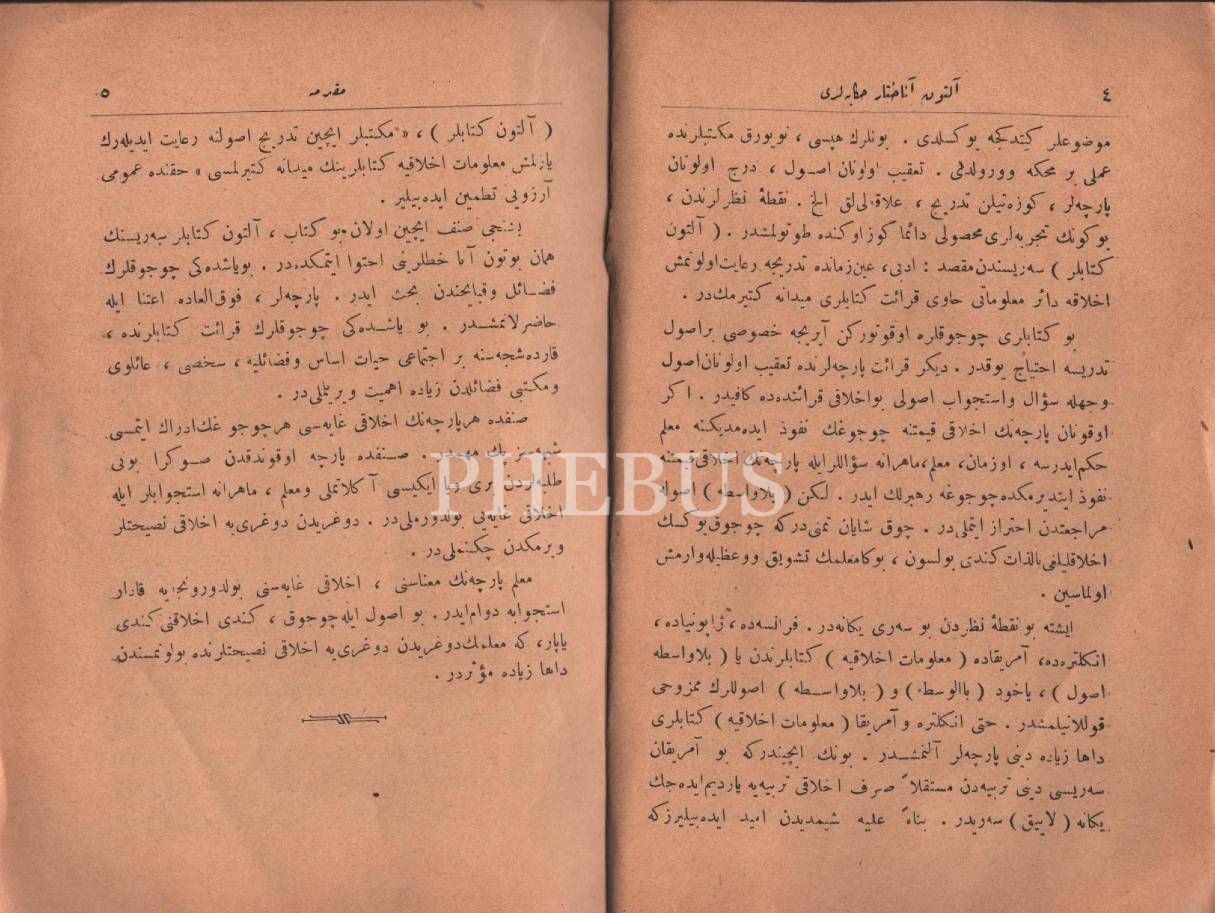 ٤
آلتون آناختار حكایه‌لری
موضوعلر كیتدكجه یوكسلدی . بونلرك هپسی ، نویورق مكتبلرنده
عملی بر محكه وورولدی . تعقیب اولونان اصـول ، درج اولونان
پارچه‌لر ، كوزه‌تیلن تدریج ، علاقه‌لی‌لق الخ . نقطهٔ نظرلرندن ،
بوكونك تجربه‌لری محصولی دائما كوزاوكنده طوتولمشدر . ( آلتون
كتابلر ) سه‌ریسندن مقصد : ادبی ، عین‌زمانده تدریجه رعایت‌اولونمش
اخلاقه دائر معلوماتی حاوی قرائت كتابلری میدانه كتیرمك‌در .
بو كتابلری چوجوقلره اوقوتوركن آیریجه خصوصی براصول
تدریسه احتیاج یوقدر . دیكر قرائت پارچه‌لرنده تعقیب اولونان‌اصول
وجهله سؤال واستجواب اصولی بواخلاقی قرائتده‌ده كافیدر . اكر
اوقونان پارچه‌نك اخلاقی قیمتنه چوجوغك نفوذ ایده‌مدیكنه معلم
حكم‌ایدرسه ، اوزمان، معلم،ماهرانه سؤاللرایله پارچه‌نك اخلاقی‌قیمتنه
نفوذ ایتدیرمكده‌چوجوغه رهبرلك ایدر . لكن ( بلاواسطه ) اصوله
مراجعتدن احتراز ایتملی‌در . چوق شایان تمنی‌دركه چوجوق‌یوكسك
اخلاقلیلغی‌بالذات‌كندی بولسون ، بوكامعلمك تشویق ووعظیله‌وارمش
اولماسین .
ایشته بونقطهٔ نظردن بو سه‌ری یكانه‌در . فرانسه‌ده، ژاپونیاده،
انكلتره‌ده، آمریقاده ( معلومات اخلاقیه ) كتابلرندن یا ( بلاواسطه
اصول ) ، یاخود ( بالوسطه ) و ( بلاواسـطه ) اصوللرك ممزوجی
قوللانیلمشدر . حتی انكلتره وآمریقا ( معلومات اخلاقیه ) كتابلری
داها زیاده دینی پارچه‌لر آلنمشـدر . بونك ایچیندركه بو آمریقان
سه‌ریسی دینی تربیه‌دن مستقلاً صرف اخلاقی تربیه‌یه یاردیم‌ایده‌جك
یكانه ( لاییق ) سه‌ریدر . بناءً علیه شیمدیدن امید ایده‌بیلیرزكه
مقدمه
٥
( آلتون كتابلر ) ، « مكتبلر ایچین تدریج اصولنه رعایت ایدیله‌رك
یازلمش معلومات اخلاقیه كتابلرینك میدانه كتیرلمسی » حقنده عمومی
آرزویی تطمین ایده‌بیلیر .
بشنجی صنف ایچین اولان بو كتاب ، آلتون كتابلر سه‌ریسنك
همان بوتون آنا خطلرینی احتوا ایتمكده‌در . بویاشده‌كی چوجوقلرك
فضـائل وقبایحندن بحث ایدر . پارچه‌لر ، فوق‌العاده اعتنا ایله
حاضرلانمشـدر . بو یاشـده‌كی چوجوقلرك قرائت كتابلرنده ،
قارده‌شجه‌سنه بر اجتماعی حیات اساس وفضائلیه ، شخصی ، عائلوی
ومكتبی فضائلدن زیاده اهمیت ویریلملی‌در .
صنفده هرپارچه‌نك اخلاقی غایه‌سی هرچوجوغك‌ادراك ایتمسی
شبهه‌سز پك مهمدر . صـنفده پارچه اوقوندقدن صـوكرا بونی
طلبه‌لردن بری ویا ایكیسی آكلاتملی ومعلم ، ماهرانه استجوابلر ایله
اخلاقی غایه‌یی بولدورملی‌در . دوغریدن دوغری‌یه اخلاقی نصیحتلر
ویرمكدن چكنملی‌در .
معلم پارچه‌نك معناسنی ، اخلاقی غایه‌سنی بولدورونجه‌یه قادار
استجوابه دوام‌ایدر . بو اصول ایله‌چوجوق ، كندی اخلاقنی‌كندی
یاپار، كه معلمك‌دوغریدن دوغری‌یه اخلاقی نصیحتلرنده بولونمسندن
داها زیاده مؤثردر .
PHEBUS